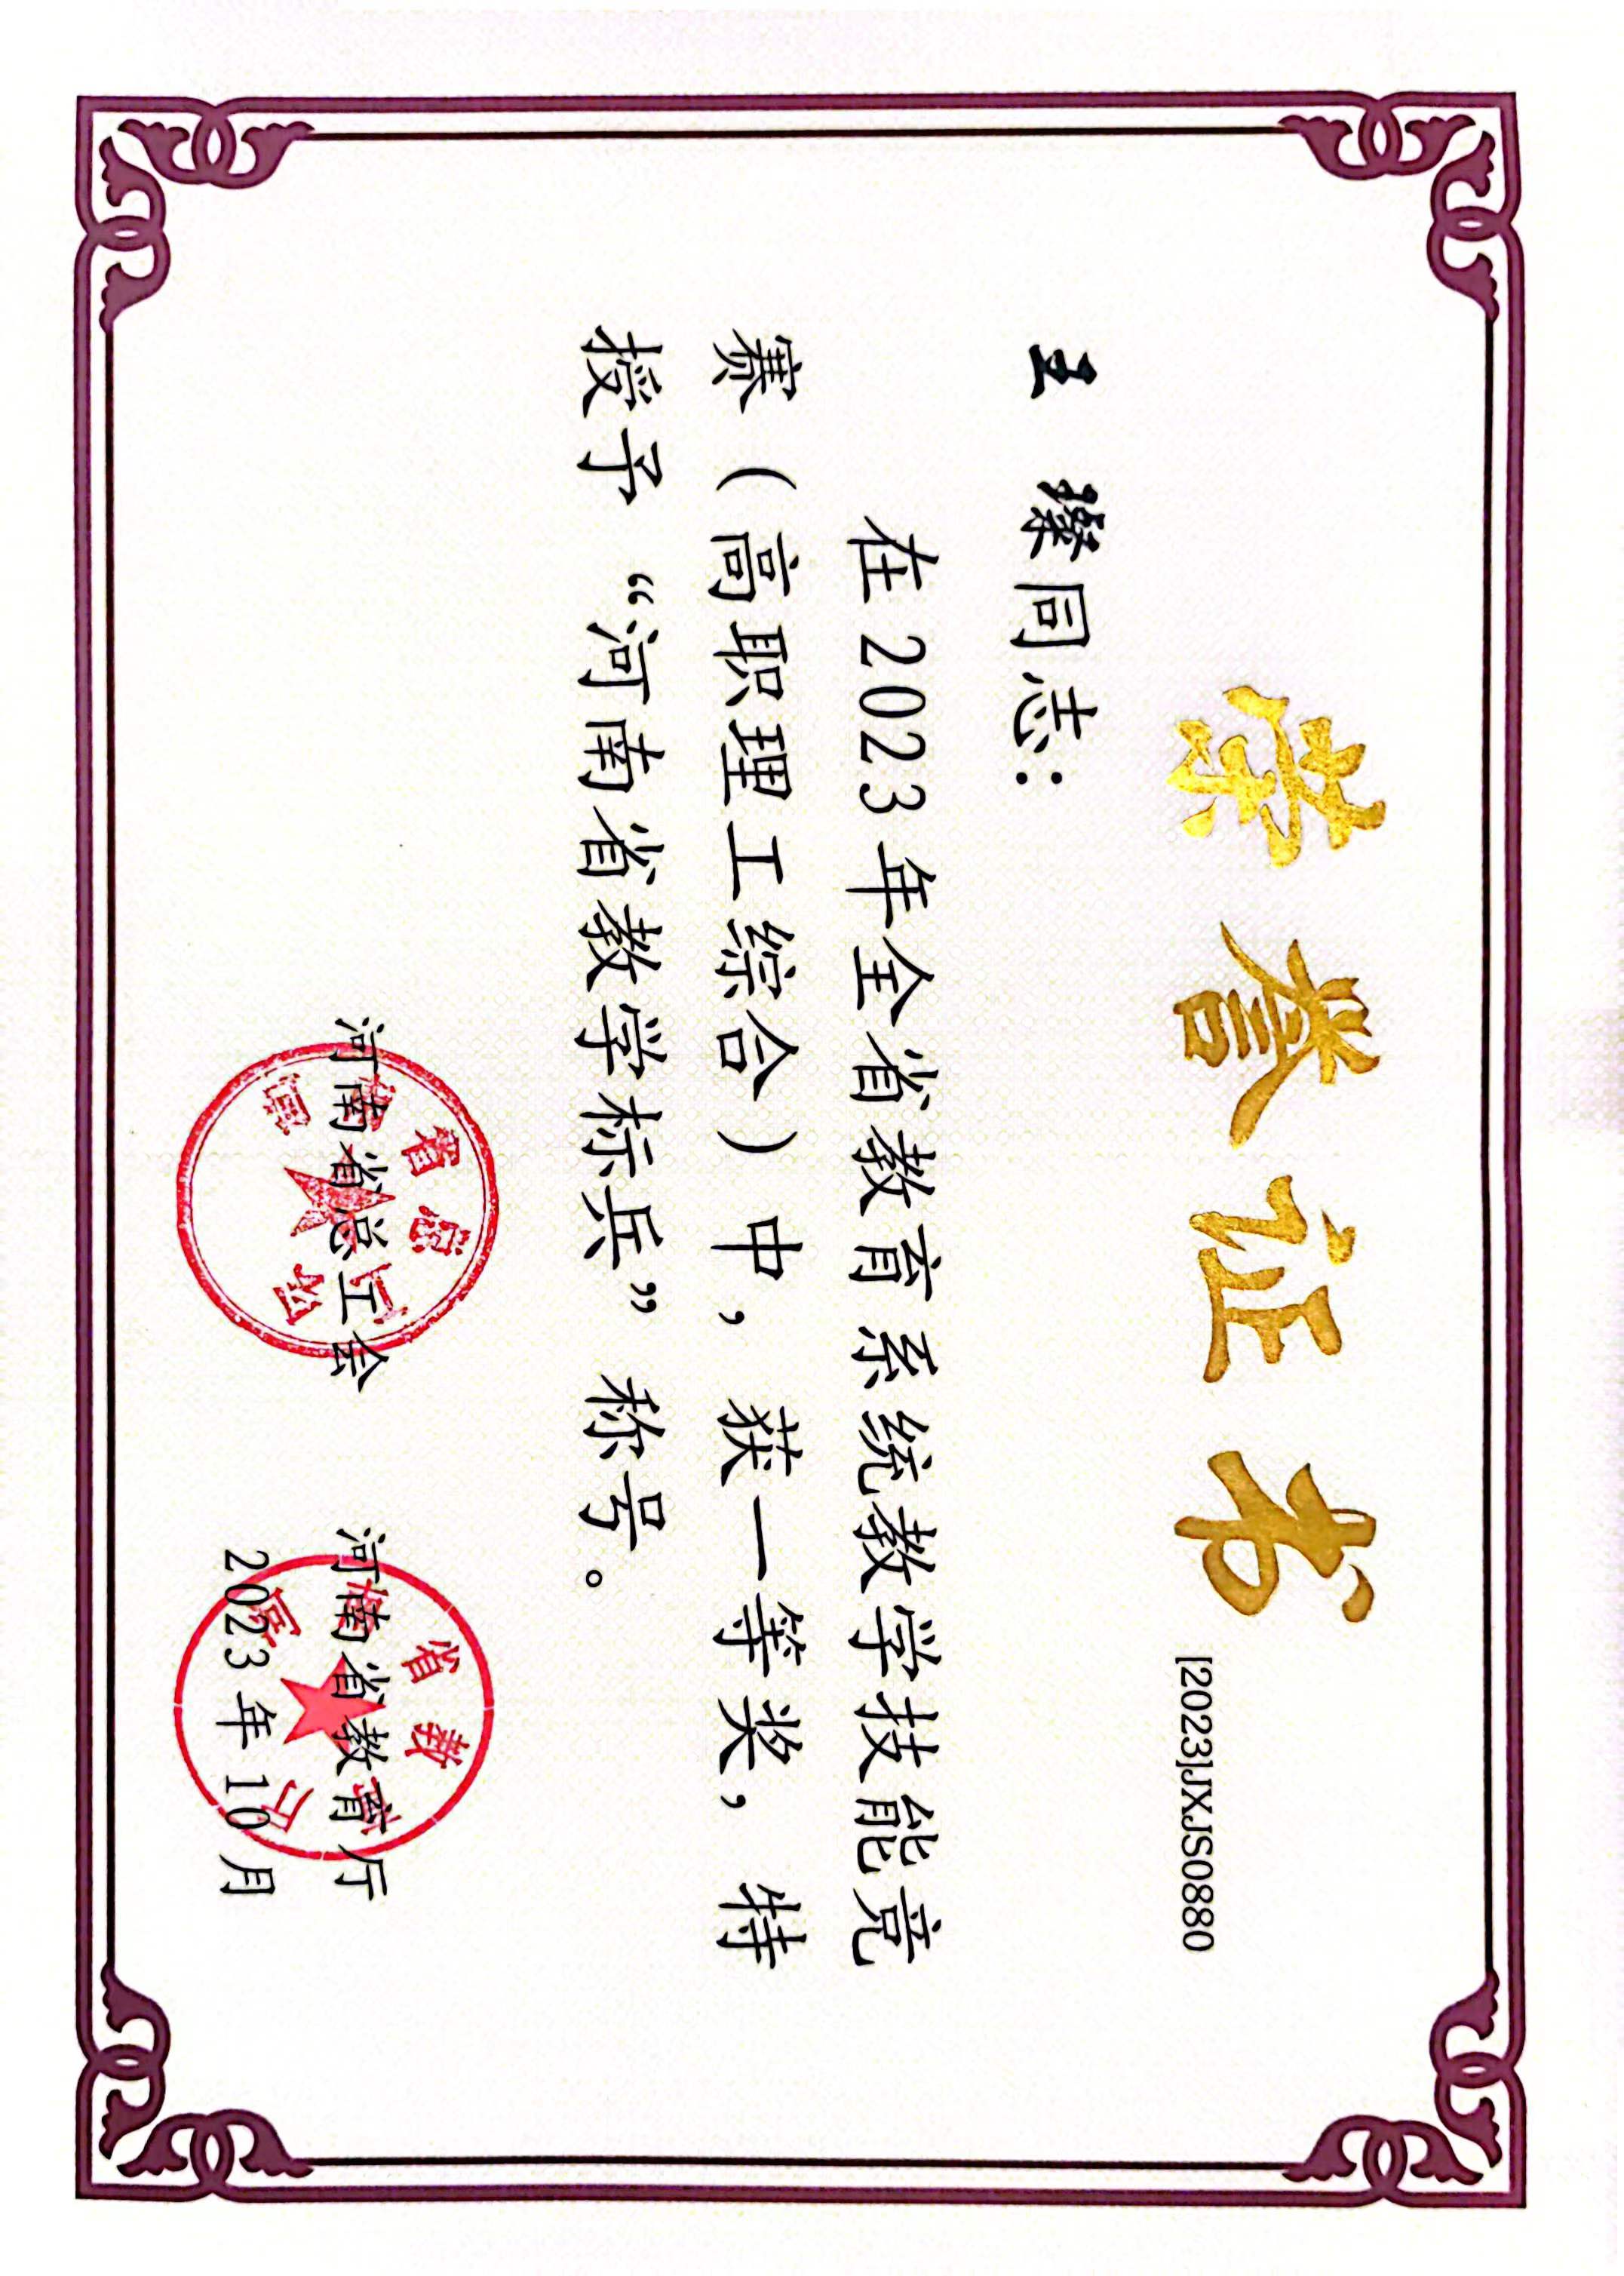 荣誉证书
[2023]JXJS0880
王 璨同志：
在2023年全省教育系统教学技能竞
赛（高职理工综合）中，获一等奖，特
授予“河南省教学标兵”称号。
河南省总工会 河南省教育厅
2023年10月